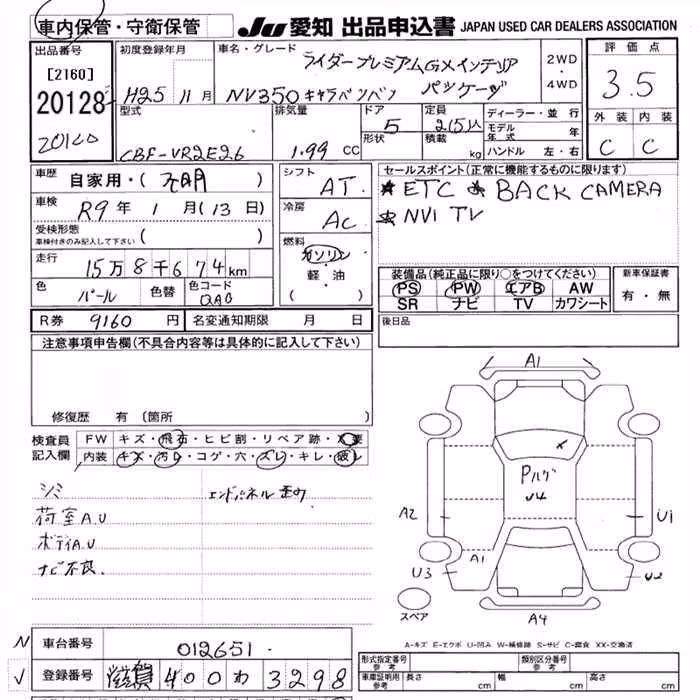 車内保管・守衛保管
JU 愛知 出品申込書 JAPAN USED CAR DEALERS ASSOCIATION
出品番号 初度登録年月 車名・グレード 評価点
[2160] ライダープレミアムGXインテリア 2WD
20128 H25 11月 NV350キャラバンバン パッケージ ・4WD 3.5
型式 排気量 ドア 定員 ディーラー・並行 外装 内装
5 2(5)人 モデル年式 年
形状 積載
CBF-VR2E26 1.99 CC kg ハンドル 左・右 C C
車歴 自家用・( ) シフト AT セールスポイント(正常に機能するものに限り)
車検 R9年 1月(13日) ETC BACK CAMERA
冷房 AC NVI TV
受検形態
車検付きのみ記入して下さい ( )
燃料 ガソリン・軽・油 ( )
走行 15万8千674km 装備品(純正品に限り○をつけてください) 新車保証書
色 パール 色替 色コード QAB PS PW エアB AW 有・無
SR ナビ TV カワシート
R券 9160円 名変通知期限 月 日 後日品
注意事項申告欄(不具合内容等は具体的に記入して下さい)
A1
修復歴 有 (箇所
検査員 FW キズ・飛石・ヒビ割・リペア跡・X要
記入欄 内装 キズ・汚レ・コゲ・穴・ズレ・キレ・破レ
シミ エンドパネル歪み
荷室A.U
ボディA.U
ナビ不良.
Pルーフ
U4
A2 U1
A1
U3 U2
スペア
A4
A-キズ E-エクボ U-凹み W-補修跡 S-サビ C-腐食 XX-交換済
N 車台番号 012651
√ 登録番号 滋賀 400 わ 3298
形式指定番号 参考 類別区分番号 参考
車庫証明用 参考 長さ cm 幅 cm 高さ cm